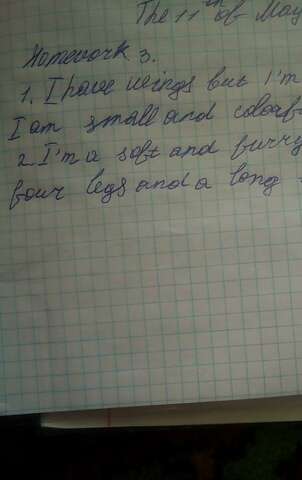 The 11th of May
Homework 3.
1. I have wings but I'm
I am small and colorf
2. I'm a soft and furry
four legs and a long